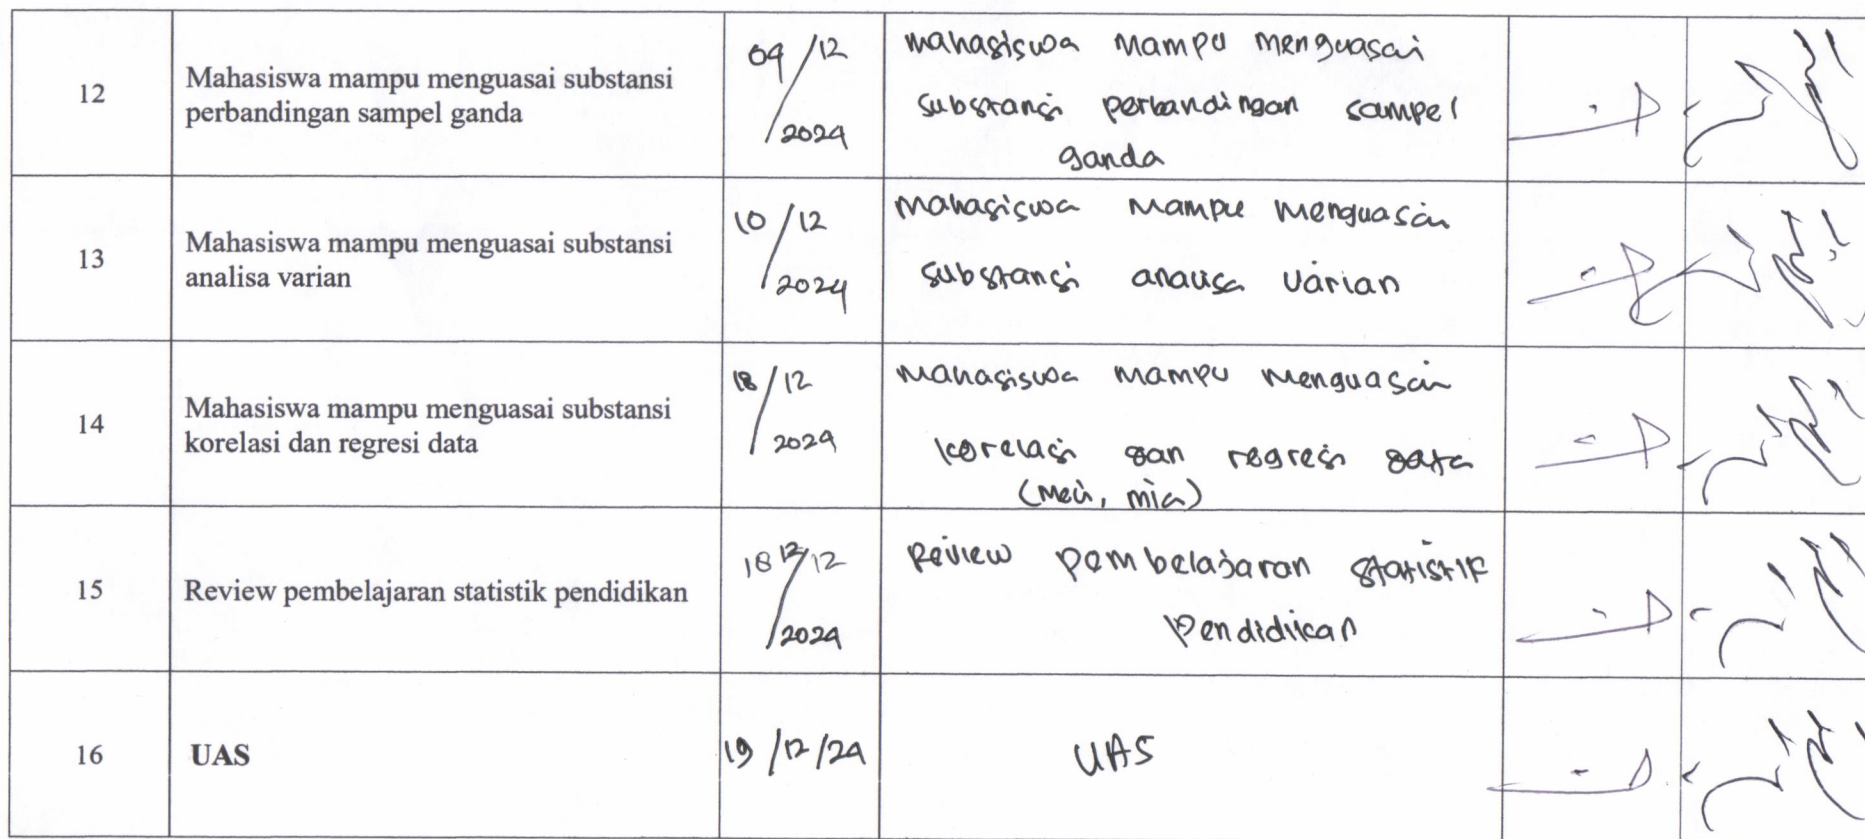 12
Mahasiswa mampu menguasai substansi
perbandingan sampel ganda
09/12
2024
mahasiswa mampu menguasai
substansi perbandingan sampel
ganda
13
Mahasiswa mampu menguasai substansi
analisa varian
10/12
2024
mahasiswa mampu menguasai
substansi analisa varian
14
Mahasiswa mampu menguasai substansi
korelasi dan regresi data
18/12
2024
mahasiswa mampu menguasai
korelasi dan regresi data
(Meci, mia)
15
Review pembelajaran statistik pendidikan
18/12
2024
Review pembelajaran statistik
pendidikan
16
UAS
19/12/24
UAS